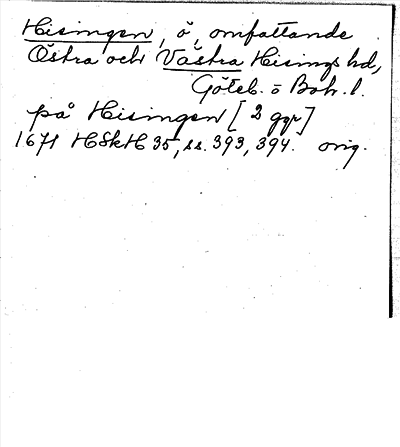 Hisingen, ö, omfattande
Östra och Västra Hisings hd,
Göteb. o Boh. l.
på Hisingen [2 ggr]
1671 HSkH 35, ss. 393, 394. orig.